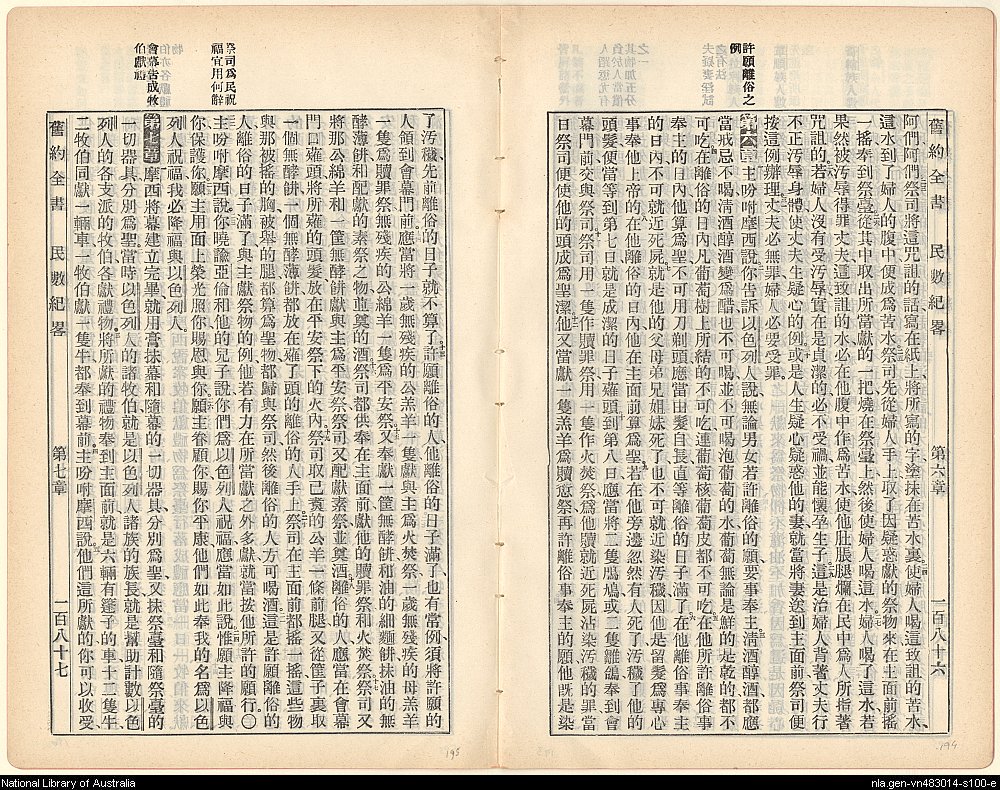 許願離俗之
例
舊約全書 民數紀畧 第六章 一百八十六
阿們阿們祭司將這咒詛的話寫在紙上將所寫的字塗抹在苦水裏使婦人喝這致詛的苦水
這水到了婦人的腹中便成爲苦水祭司先從婦人手上取了因疑惑獻的祭物來在主面前搖
一搖奉到祭臺從其中取出所當獻的一把燒在祭臺上然後使婦人喝這水婦人喝了這水若
果然被汚辱得罪丈夫這致詛的水必在他腹中作爲苦水使他肚脹腿爛在民中爲人所指著
咒詛的若婦人沒有受汚辱實在是貞潔的必不受禍並能懷孕生子這是治婦人背著丈夫行
不正汚辱身體使丈夫生疑心的例或是人生疑心疑惑他的妻就當將妻送到主面前祭司便
按這例辦理丈夫必無罪婦人必要受罪
第六章主吩咐摩西說你告訴以色列人說無論男女若許離俗的願要事奉主淸酒醇酒都應
當戒忌不喝淸酒醇酒變爲醋也不可喝並不可喝泡葡萄的水葡萄無論是鮮的是乾的都不
可吃在離俗的日內凡葡萄樹上所結的不可吃連葡萄核葡萄皮都不可吃在他所許離俗事
奉主的日內他算爲聖不可用刀剃頭應當由髮自長直等離俗的日子滿了在他離俗事奉主
的日內不可就近死屍就是他的父母弟兄姐妹死了也不可就近染汚穢因他是留髮爲專心
事奉他上帝的在他離俗的日內他在主面前算爲聖若在他旁邊忽然有人死了汚穢了他的
頭髮便當等到第七日就是成潔的日子薙頭到第八日應當將二隻鳲鳩或二隻雛鴿奉到會
幕門前交與祭司祭司用一隻作贖罪祭用一隻作火焚祭爲他贖就近死屍沾染汚穢的罪當
日祭司便使他的頭成爲聖潔他又當獻一隻羔羊爲贖愆祭再許離俗事奉主的願他旣是染
祭司爲民祝
福宜用何辭
會幕告成牧
伯獻禮
了汚穢先前離俗的日子就不算了許願離俗的人他離俗的日子滿了也有當例須將許願的
人領到會幕門前應當將一歲無殘疾的公羔羊一隻獻與主爲火焚祭一歲無殘疾的母羔羊
一隻爲贖罪祭無殘疾的公綿羊一隻爲平安祭又奉獻一筐無酵餅和油的細麵餅抹油的無
酵薄餅和配獻的素祭之物並奠的酒祭司都供奉在主面前獻他的贖罪祭和火焚祭祭司又
將那公綿羊和一筐無酵餅獻與主爲平安祭祭司又配獻素祭並奠酒離俗的人應當在會幕
門口薙頭將所薙的頭髮放在平安祭下的火內祭司取已煑的公羊一條前腿又從筐子裏取
一個無酵餅一個無酵薄餅都放在薙了頭的離俗的人手上祭司在主面前都搖一搖這些物
與那被搖的胸被舉的腿都算爲聖物都歸與祭司然後離俗的人方可喝酒這是許願離俗的
人離俗的日子滿了與主獻祭物的例他若有力在所當獻之外多獻就當按他所許的願行〇
主吩咐摩西說你曉諭亞倫和他的兒子說你們爲以色列人祝福應當如此說惟願主降福與
你保護你願主用面上榮光照你賜恩與你願主眷顧你賜你平康他們如此奉我的名爲以色
列人祝福我必降福與以色列人
第七章摩西將幕建立完畢就用膏抹幕和隨幕的一切器具分別爲聖又抹祭臺和隨祭臺的
一切器具分別爲聖當時以色列人的諸牧伯就是以色列人諸族的族長就是幫助計數以色
列人的各支派的牧伯各獻禮物將所獻的禮物奉到主面前就是六輛有篷子的車十二隻牛
二牧伯同獻一輛車一牧伯獻一隻牛都奉到幕前主吩咐摩西說他們這所獻的你可以收受
舊約全書 民數紀畧 第七章 一百八十七
195
194
National Library of Australia
nla.gen-vn483014-s100-e